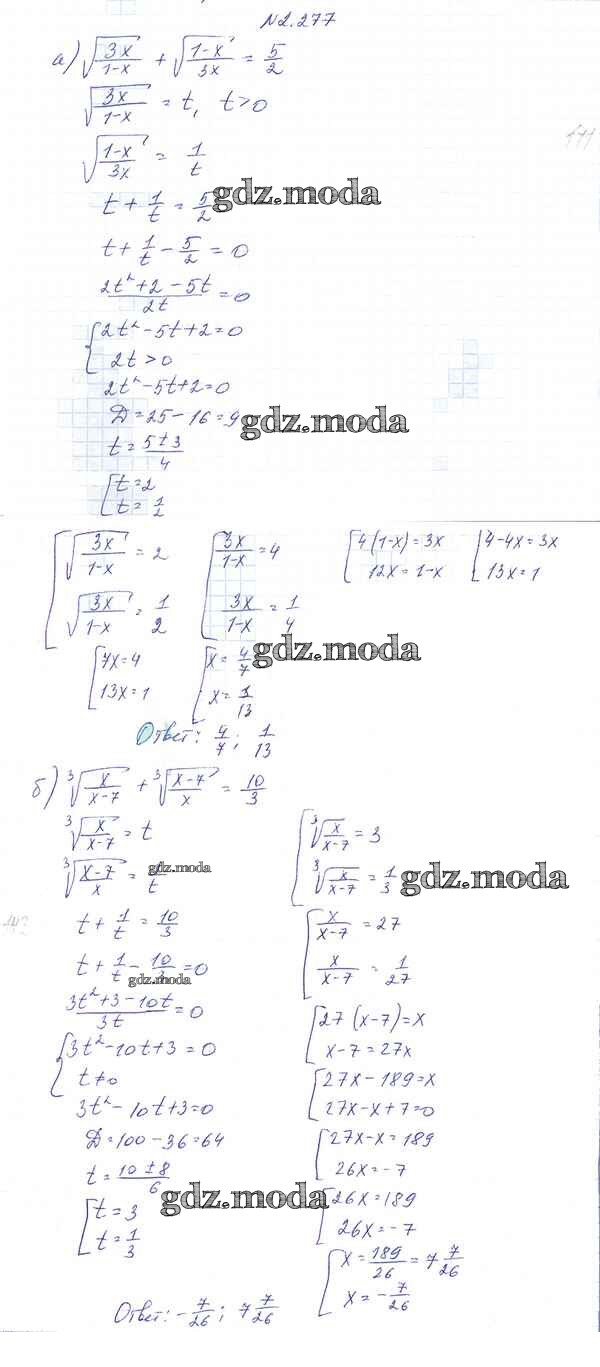 N2.277
а) √(3x/(1-x)) + √((1-x)/3x) = 5/2
√(3x/(1-x)) = t, t>0
√((1-x)/3x) = 1/t
gdz.moda
t + 1/t = 5/2
t + 1/t - 5/2 = 0
(2t² + 2 - 5t)/2t = 0
{ 2t² - 5t + 2 = 0
2t > 0
2t² - 5t + 2 = 0
D = 25 - 16 = 9
gdz.moda
t = (5 ± 3)/4
[ t = 2
t = 1/2
[ √(3x/(1-x)) = 2 [ 3x/(1-x) = 4 [ 4(1-x) = 3x [ 4-4x = 3x
√(3x/(1-x)) = 1/2 3x/(1-x) = 1/4 12x = 1-x 13x = 1
[ 7x = 4 [ x = 4/7
gdz.moda
13x = 1 x = 1/13
Ответ: 4/7; 1/13
б) ³√(x/(x-7)) + ³√((x-7)/x) = 10/3
³√(x/(x-7)) = t
³√((x-7)/x) = 1/t
gdz.moda
t + 1/t = 10/3
t + 1/t - 10/3 = 0
gdz.moda
(3t² + 3 - 10t)/3t = 0
{ 3t² - 10t + 3 = 0
t ≠ 0
3t² - 10t + 3 = 0
D = 100 - 36 = 64
t = (10 ± 8)/6
gdz.moda
[ t = 3
t = 1/3
[ ³√(x/(x-7)) = 3
³√(x/(x-7)) = 1/3
gdz.moda
[ x/(x-7) = 27
x/(x-7) = 1/27
[ 27(x-7) = x
x-7 = 27x
[ 27x - 189 = x
27x - x + 7 = 0
[ 27x - x = 189
26x = -7
[ 26x = 189
26x = -7
[ x = 189/26 = 7 7/26
x = -7/26
Ответ: -7/26; 7 7/26